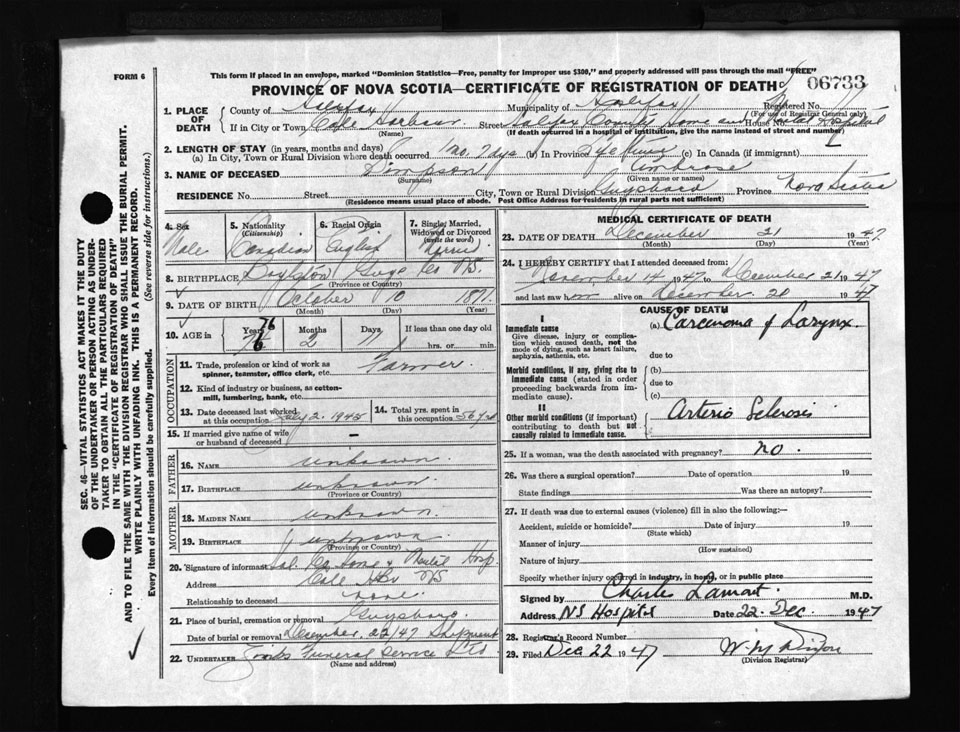 FORM 6
This form if placed in an envelope, marked "Dominion Statistics—Free, penalty for improper use $300," and properly addressed will pass through the mail "FREE"
PROVINCE OF NOVA SCOTIA—CERTIFICATE OF REGISTRATION OF DEATH 06733
1. PLACE OF DEATH
County of Halifax Municipality of Halifax Registered No.
(For use of Registrar General only)
If in City or Town Cole Harbour Street Halifax County Home and Mental Hospital House No.
(Name) (If death occurred in a hospital or institution, give the name instead of street and number)
2. LENGTH OF STAY (in years, months and days)
(a) In City, Town or Rural Division where death occurred 1 mo. 7 days (b) In Province Life time (c) In Canada (if immigrant)
3. NAME OF DECEASED Ambrose
(Surname) (Given name or names)
RESIDENCE No. Street City, Town or Rural Division Guysboro Province Nova Scotia
(Residence means usual place of abode. Post Office Address for residents in rural parts not sufficient)
4. Sex Male
5. Nationality (Citizenship) Canadian
6. Racial Origin English
7. Single, Married, Widowed or Divorced (write the word)
8. BIRTHPLACE Boylston Guys Co NS.
(Province or Country)
9. DATE OF BIRTH October 10 1871
(Month) (Day) (Year)
10. AGE in Years 76 Months 2 Days 11 If less than one day old hrs. or min.
OCCUPATION
11. Trade, profession or kind of work as spinner, teamster, office clerk, etc. Farmer
12. Kind of industry or business, as cotton-mill, lumbering, bank, etc.
13. Date deceased last worked at this occupation July 2. 1945
14. Total yrs. spent in this occupation 56 yrs
15. If married give name of wife or husband of deceased –
FATHER
16. NAME unknown
17. BIRTHPLACE unknown
(Province or Country)
MOTHER
18. MAIDEN NAME unknown
19. BIRTHPLACE unknown
(Province or Country)
20. Signature of informant Hal. Co Home & Mental Hosp.
Address Cole Hbr NS
Relationship to deceased none
21. Place of burial, cremation or removal Guysboro
Date of burial or removal December. 22/47 Shipment
22. UNDERTAKER Funeral Service Ltd
(Name and address)
MEDICAL CERTIFICATE OF DEATH
23. DATE OF DEATH December 21 1947
(Month) (Day) (Year)
24. I HEREBY CERTIFY that I attended deceased from:
November 14 1947 to December 21 1947
and last saw him alive on December 20 1947
CAUSE OF DEATH
I
Immediate cause (a) Carcinoma of Larynx.
Give disease, injury or complication which caused death, not the mode of dying, such as heart failure, asphyxia, asthenia, etc. due to
Morbid conditions, if any, giving rise to immediate cause (stated in order proceeding backwards from immediate cause). (b)
due to
(c)
II
Other morbid conditions (if important) contributing to death but not causally related to immediate cause. Arterio Sclerosis
25. If a woman, was the death associated with pregnancy? no.
26. Was there a surgical operation? Date of operation 19
State findings Was there an autopsy?
27. If death was due to external causes (violence) fill in also the following:—
Accident, suicide or homicide? Date of injury 19
(State which)
Manner of injury
(How sustained)
Nature of injury
Specify whether injury occurred in industry, in home, or in public place
Signed by Charles Lamont M.D.
Address NS Hospital Date 22. Dec. 1947
28. Registrar's Record Number
29. Filed Dec 22 1947 W. M
(Division Registrar)
SEC. 46—VITAL STATISTICS ACT MAKES IT THE DUTY
OF THE UNDERTAKER OR PERSON ACTING AS UNDER-
TAKER TO OBTAIN ALL THE PARTICULARS REQUIRED
IN THE "CERTIFICATE OF REGISTRATION OF DEATH"
AND TO FILE THE SAME WITH THE DIVISION REGISTRAR WHO SHALL ISSUE THE BURIAL PERMIT.
WRITE PLAINLY WITH UNFADING INK. THIS IS A PERMANENT RECORD.
Every item of information should be carefully supplied. (See reverse side for instructions.)